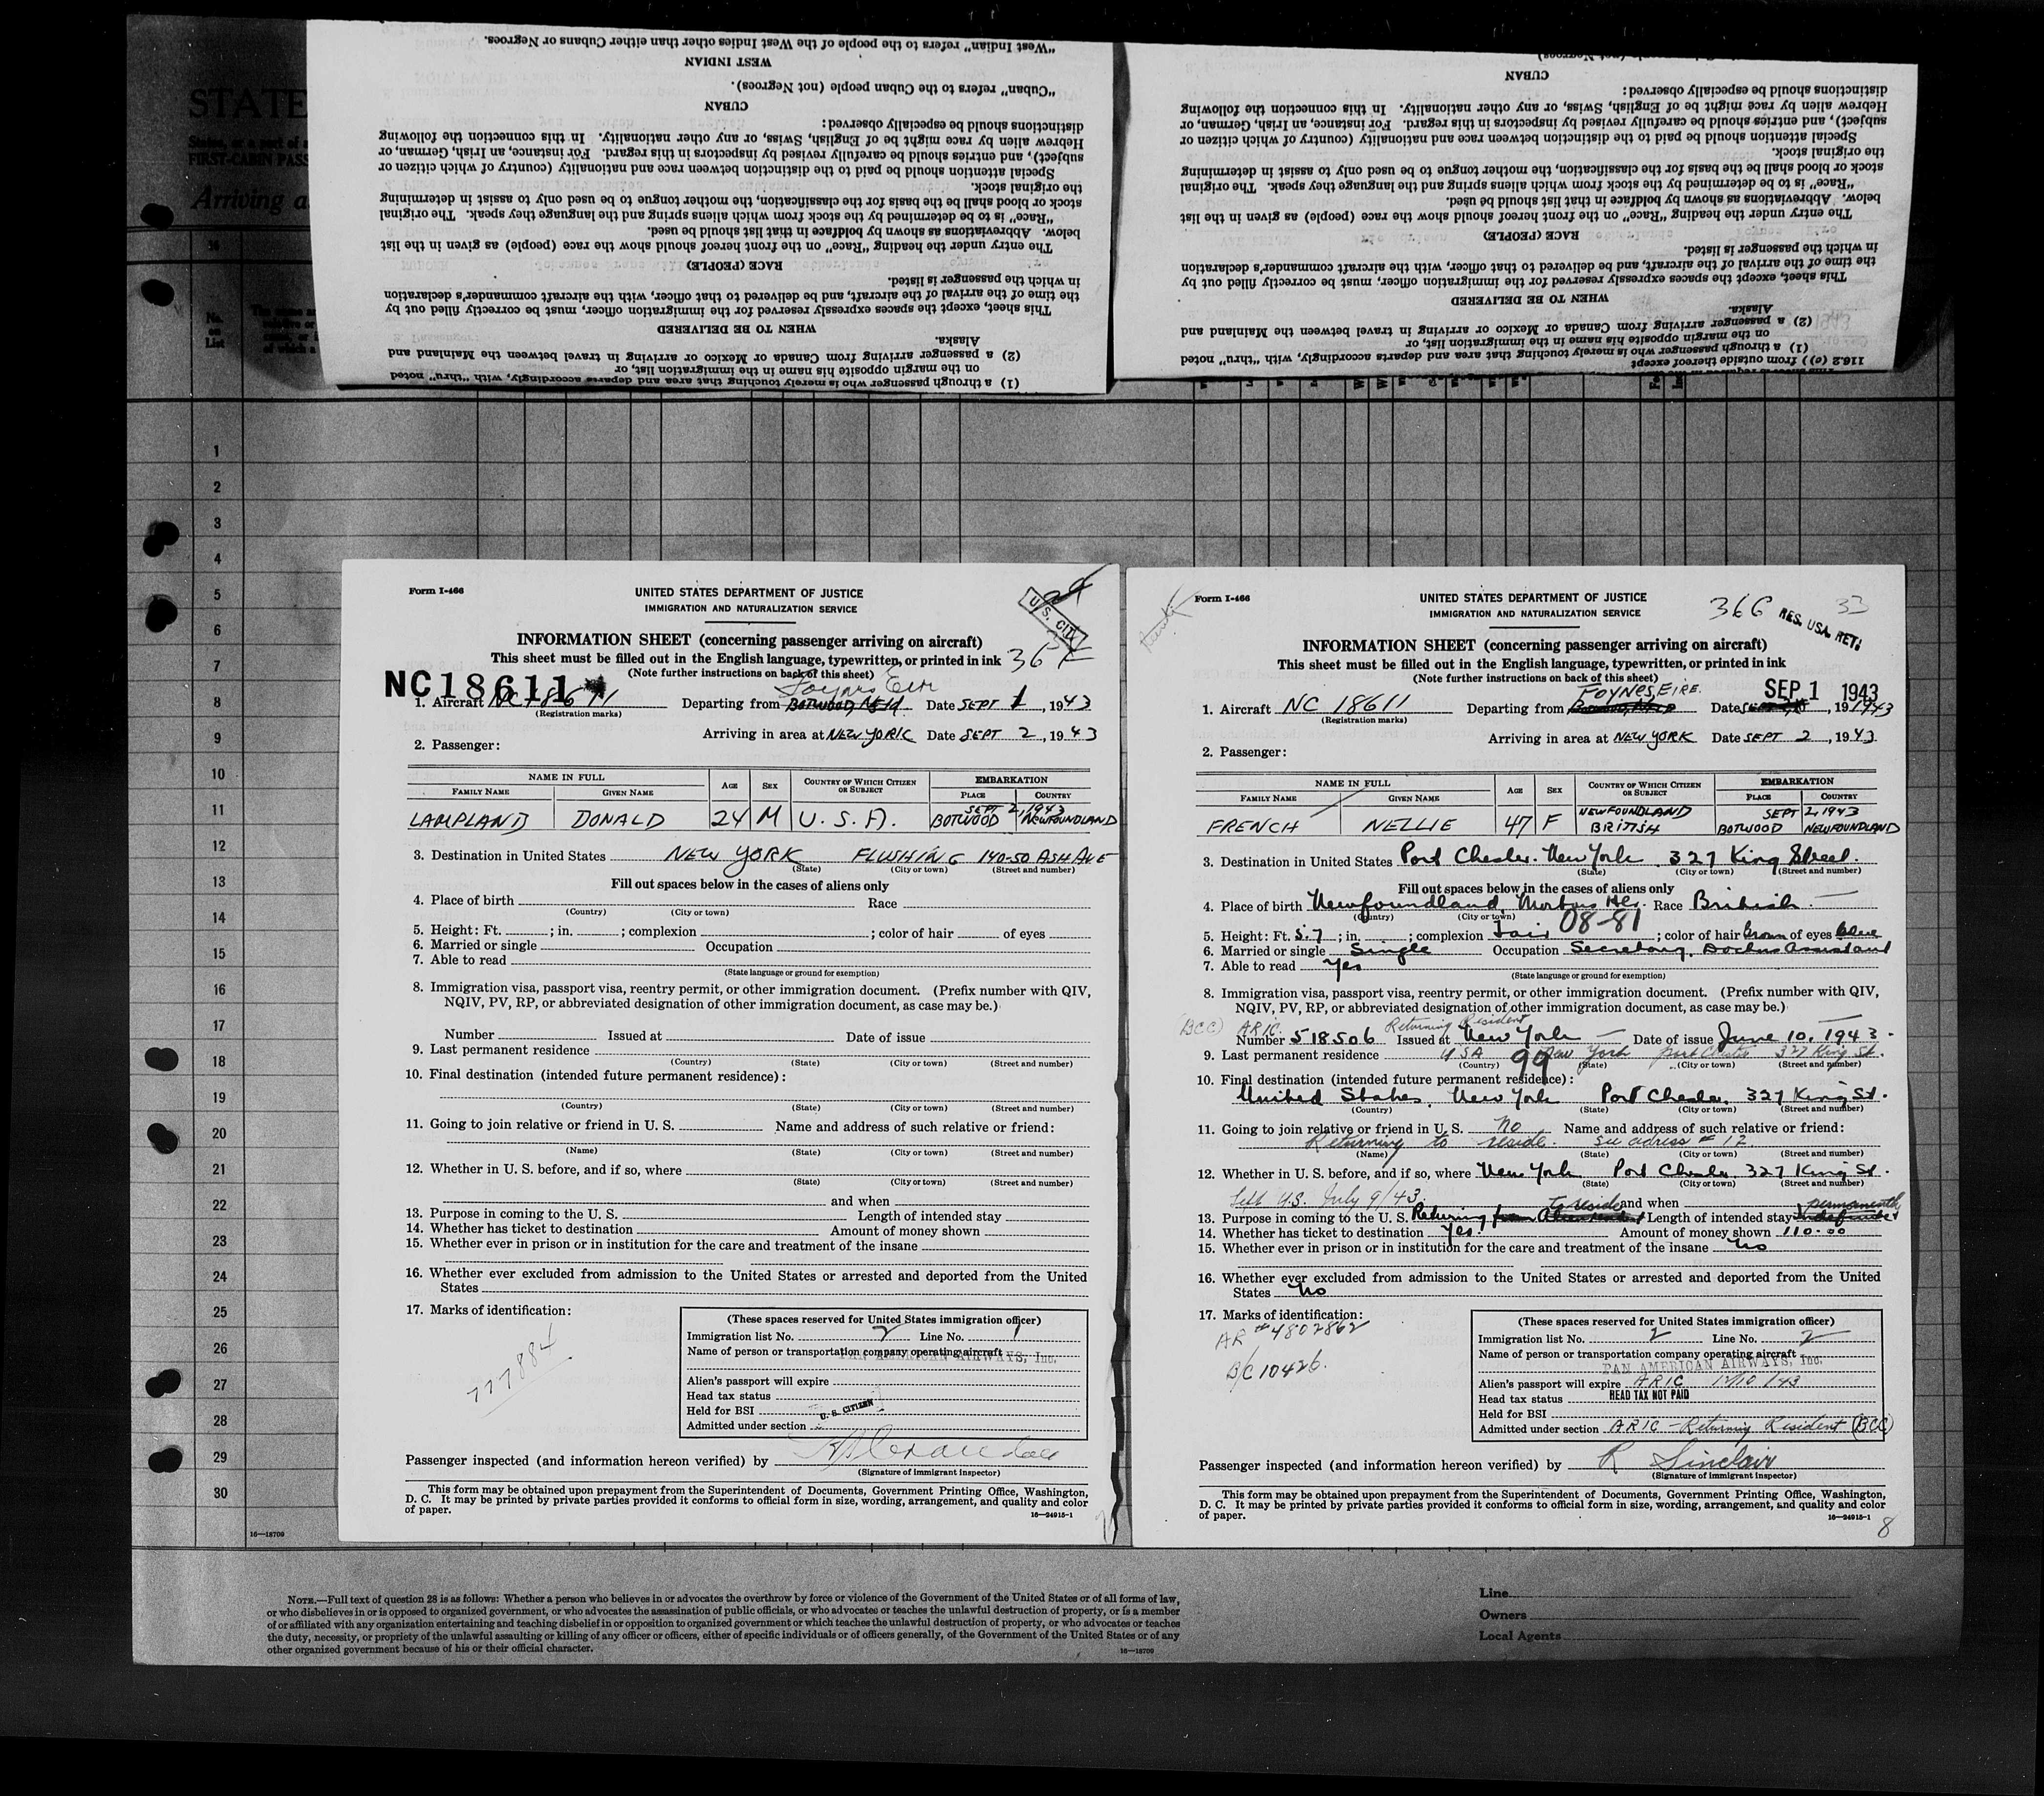 STATE
States, or a part of a
FIRST-CABIN PASS
Arriving a
No.
on
List
"West Indian" refers to the people of the West Indies other than either Cubans or Negroes.
WEST INDIAN
"Cuban" refers to the Cuban people (not Negroes).
CUBAN
distinctions should be especially observed:
Hebrew alien by race might be of English, Swiss, or any other nationality. In this connection the following
subject), and entries should be carefully revised by inspectors in this regard. For instance, an Irish, German, or
Special attention should be paid to the distinction between race and nationality (country of which citizen or
the original stock.
stock or blood shall be the basis for the classification, the mother tongue to be used only to assist in determining
"Race" is to be determined by the stock from which aliens spring and the language they speak. The original
below. Abbreviations as shown by boldface in that list should be used.
The entry under the heading "Race" on the front hereof should show the race (people) as given in the list
RACE (PEOPLE)
in which the passenger is listed.
the time of the arrival of the aircraft, and be delivered to that officer, with the aircraft commander's declaration
This sheet, except the spaces expressly reserved for the immigration officer, must be correctly filled out by
WHEN TO BE DELIVERED
Alaska.
(2) a passenger arriving from Canada or Mexico or arriving in travel between the Mainland and
on the margin opposite his name in the immigration list, or
(1) a through passenger who is merely touching that area and departs accordingly, with "thru" noted
CUBAN
distinctions should be especially observed:
Hebrew alien by race might be of English, Swiss, or any other nationality. In this connection the following
subject), and entries should be carefully revised by inspectors in this regard. For instance, an Irish, German, or
Special attention should be paid to the distinction between race and nationality (country of which citizen or
the original stock.
stock or blood shall be the basis for the classification, the mother tongue to be used only to assist in determining
"Race" is to be determined by the stock from which aliens spring and the language they speak. The original
below. Abbreviations as shown by boldface in that list should be used.
The entry under the heading "Race" on the front hereof should show the race (people) as given in the list
RACE (PEOPLE)
in which the passenger is listed.
the time of the arrival of the aircraft, and be delivered to that officer, with the aircraft commander's declaration
This sheet, except the spaces expressly reserved for the immigration officer, must be correctly filled out by
WHEN TO BE DELIVERED
Alaska.
(2) a passenger arriving from Canada or Mexico or arriving in travel between the Mainland and
on the margin opposite his name in the immigration list, or
(1) a through passenger who is merely touching that area and departs accordingly, with "thru" noted
116.2 (c)) from outside thereof except
1
2
3
4
5
6
7
8
9
10
11
12
13
14
15
16
17
18
19
20
21
22
23
24
25
26
27
28
29
30
16—18709
Form I-466
UNITED STATES DEPARTMENT OF JUSTICE
IMMIGRATION AND NATURALIZATION SERVICE
U.S. CIT
INFORMATION SHEET (concerning passenger arriving on aircraft)
This sheet must be filled out in the English language, typewritten, or printed in ink
(Note further instructions on back of this sheet)
NC18611
Foynes Eire
1. Aircraft NC 18611 Departing from BOTWOOD, NFLD. Date SEPT 1, 1943
(Registration marks)
Arriving in area at NEW YORK Date SEPT 2, 1943
2. Passenger:
NAME IN FULL AGE SEX COUNTRY OF WHICH CITIZEN OR SUBJECT EMBARKATION
FAMILY NAME GIVEN NAME PLACE COUNTRY
SEPT 2, 1943
LAMPLAND DONALD 24 M U.S.A. BOTWOOD NEWFOUNDLAND
3. Destination in United States NEW YORK FLUSHING 140-50 ASH AVE
(State) (City or town) (Street and number)
Fill out spaces below in the cases of aliens only
4. Place of birth Race
(Country) (City or town)
5. Height: Ft. ; in. ; complexion ; color of hair of eyes
6. Married or single Occupation
7. Able to read
(State language or ground for exemption)
8. Immigration visa, passport visa, reentry permit, or other immigration document. (Prefix number with QIV,
NQIV, PV, RP, or abbreviated designation of other immigration document, as case may be.)
Number Issued at Date of issue
9. Last permanent residence
(Country) (State) (City or town) (Street and number)
10. Final destination (intended future permanent residence):
(Country) (State) (City or town) (Street and number)
11. Going to join relative or friend in U. S. Name and address of such relative or friend:
(Name) (State) (City or town) (Street and number)
12. Whether in U. S. before, and if so, where
(State) (City or town) (Street and number)
and when
13. Purpose in coming to the U. S. Length of intended stay
14. Whether has ticket to destination Amount of money shown
15. Whether ever in prison or in institution for the care and treatment of the insane
16. Whether ever excluded from admission to the United States or arrested and deported from the United
States
17. Marks of identification:
777884
(These spaces reserved for United States immigration officer)
Immigration list No. 2 Line No. 1
Name of person or transportation company operating aircraft
PAN AMERICAN AIRWAYS, Inc.
Alien's passport will expire
Head tax status
Held for BSI
U. S. CITIZEN
Admitted under section
Passenger inspected (and information hereon verified) by
(Signature of immigrant inspector)
This form may be obtained upon prepayment from the Superintendent of Documents, Government Printing Office, Washington,
D. C. It may be printed by private parties provided it conforms to official form in size, wording, arrangement, and quality and color
of paper.
16—24915-1
Form I-466
UNITED STATES DEPARTMENT OF JUSTICE
IMMIGRATION AND NATURALIZATION SERVICE
366 33
RES. USA. RET.
INFORMATION SHEET (concerning passenger arriving on aircraft)
This sheet must be filled out in the English language, typewritten, or printed in ink
(Note further instructions on back of this sheet)
FOYNES, EIRE. SEP 1 1943
1. Aircraft NC 18611 Departing from Date , 1943
(Registration marks)
Arriving in area at NEW YORK Date SEPT 2, 1943
2. Passenger:
NAME IN FULL AGE SEX COUNTRY OF WHICH CITIZEN OR SUBJECT EMBARKATION
FAMILY NAME GIVEN NAME PLACE COUNTRY
NEWFOUNDLAND SEPT 2, 1943
FRENCH NELLIE 47 F BRITISH BOTWOOD NEWFOUNDLAND
3. Destination in United States Port Chester. New York 327 King Street.
(State) (City or town) (Street and number)
Fill out spaces below in the cases of aliens only
4. Place of birth Newfoundland, Race British
(Country) (City or town)
08-81
5. Height: Ft. 5.7; in. ; complexion Fair; color of hair Brown of eyes Blue
6. Married or single Single Occupation Secretary, Doctors Assistant
7. Able to read Yes
(State language or ground for exemption)
8. Immigration visa, passport visa, reentry permit, or other immigration document. (Prefix number with QIV,
NQIV, PV, RP, or abbreviated designation of other immigration document, as case may be.)
(BCC) ARIC. Returning Resident
Number 518506 Issued at New York Date of issue June 10. 1943.
9. Last permanent residence USA New York Port Chester 327 King St.
99
(Country) (State) (City or town) (Street and number)
10. Final destination (intended future permanent residence):
United States, New York Port Chester, 327 King St.
(Country) (State) (City or town) (Street and number)
11. Going to join relative or friend in U. S. No Name and address of such relative or friend:
Returning to reside. See adress # 12
(Name) (State) (City or town) (Street and number)
12. Whether in U. S. before, and if so, where New York Port Chester, 327 King St.
(State) (City or town) (Street and number)
Left U.S. July 9/43. and when
to reside permanently
13. Purpose in coming to the U. S. Returning from Length of intended stay
14. Whether has ticket to destination Yes. Amount of money shown 110.00
15. Whether ever in prison or in institution for the care and treatment of the insane No
16. Whether ever excluded from admission to the United States or arrested and deported from the United
States No
17. Marks of identification:
AR # 4802862
B/C 10426.
(These spaces reserved for United States immigration officer)
Immigration list No. 2 Line No. 2
Name of person or transportation company operating aircraft
PAN AMERICAN AIRWAYS, Inc.
Alien's passport will expire ARIC 12/10/43
Head tax status HEAD TAX NOT PAID
Held for BSI
Admitted under section ARIC - Returning Resident (BCC)
Passenger inspected (and information hereon verified) by R Sinclair
(Signature of immigrant inspector)
This form may be obtained upon prepayment from the Superintendent of Documents, Government Printing Office, Washington,
D. C. It may be printed by private parties provided it conforms to official form in size, wording, arrangement, and quality and color
of paper.
16—24915-1
8
NOTE.—Full text of question 28 is as follows: Whether a person who believes in or advocates the overthrow by force or violence of the Government of the United States or of all forms of law,
or who disbelieves in or is opposed to organized government, or who advocates the assassination of public officials, or who advocates or teaches the unlawful destruction of property, or is a member
of or affiliated with any organization entertaining and teaching disbelief in or opposition to organized government or which teaches the unlawful destruction of property, or who advocates or teaches
the duty, necessity, or propriety of the unlawful assaulting or killing of any officer or officers, either of specific individuals or of officers generally, of the Government of the United States or of any
other organized government because of his or their official character.
16—18709
Line
Owners
Local Agents